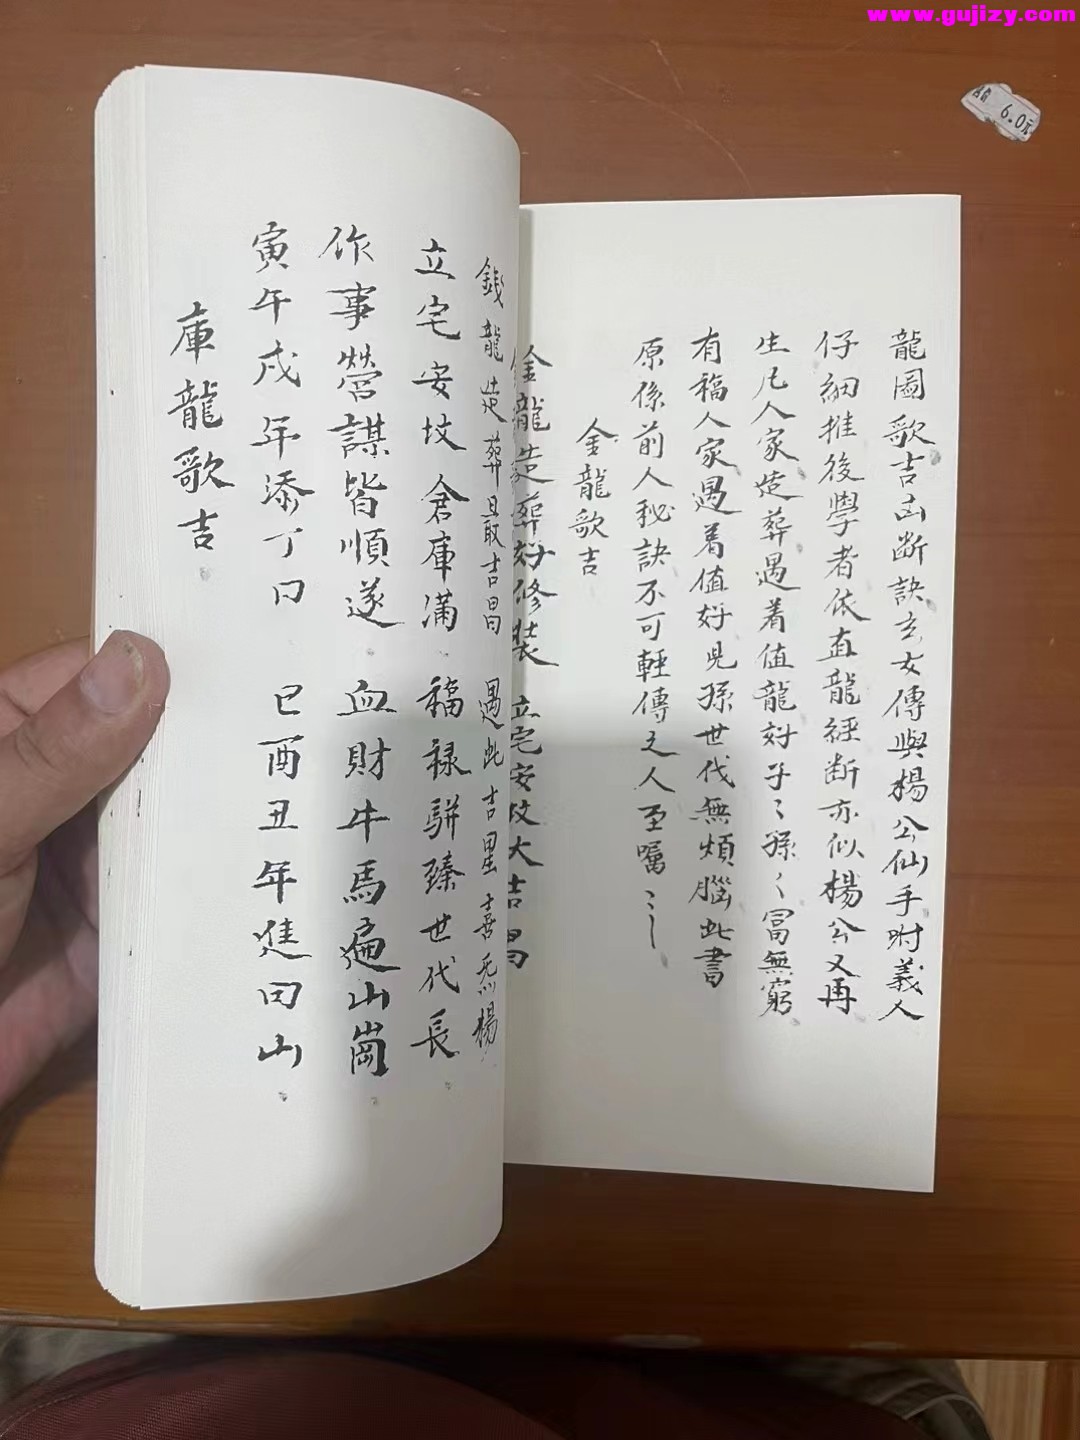 www.gujizy.com
6.0元
龍圖歌吉凶断訣玄女傳與楊公仙手附義人
仔細推後學者依直龍經断亦似楊公又再
生凡人家造葬遇着值龍好子〻孫〻冨無窮
有福人家遇着值好児孫世代無煩腦此書
原係前人秘訣不可輕傳之人至嘱〻〻
金龍歌吉
金龍造葬好修裝 立宅安坟大吉昌
錢龍造葬最吉昌 遇此吉星喜
立宅安坟倉庫滿 福禄駢臻世代長
作事營謀皆順遂 血財牛馬遍山崗
寅午戌年添丁口 巳酉丑年進田山
庫龍歌吉